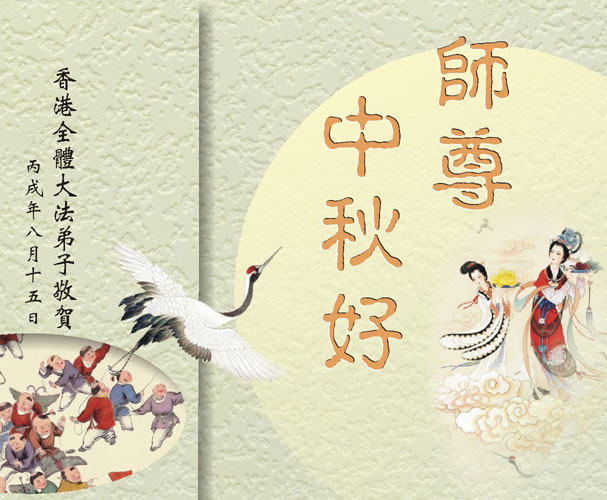 師尊
中秋好
香港全體大法弟子敬賀
丙戌年八月十五日